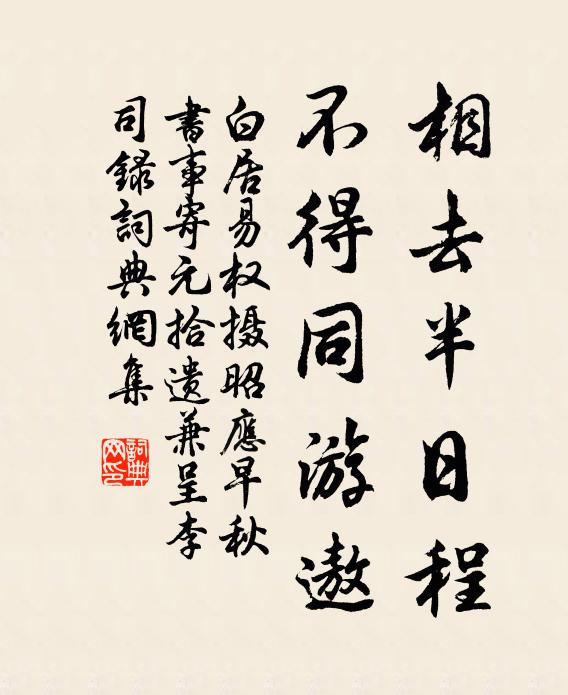 相去半日程
不得同游遨
白居易权摄昭應早秋
書事寄元拾遗兼呈李
司錄詞典網集
詞典
网印